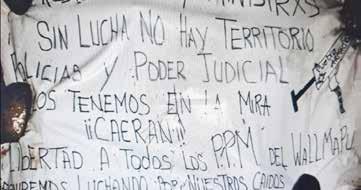 SIN LUCHA NO HAY TERRITORIO
Y PODER JUDICIAL
OS TENEMOS EN LA MIRA
¡¡CAERAN!!
BERTAD A TODOS LOS P.P.M. DEL WALLMAPU
LUCHANDO POR NUESTROS CAIDOS